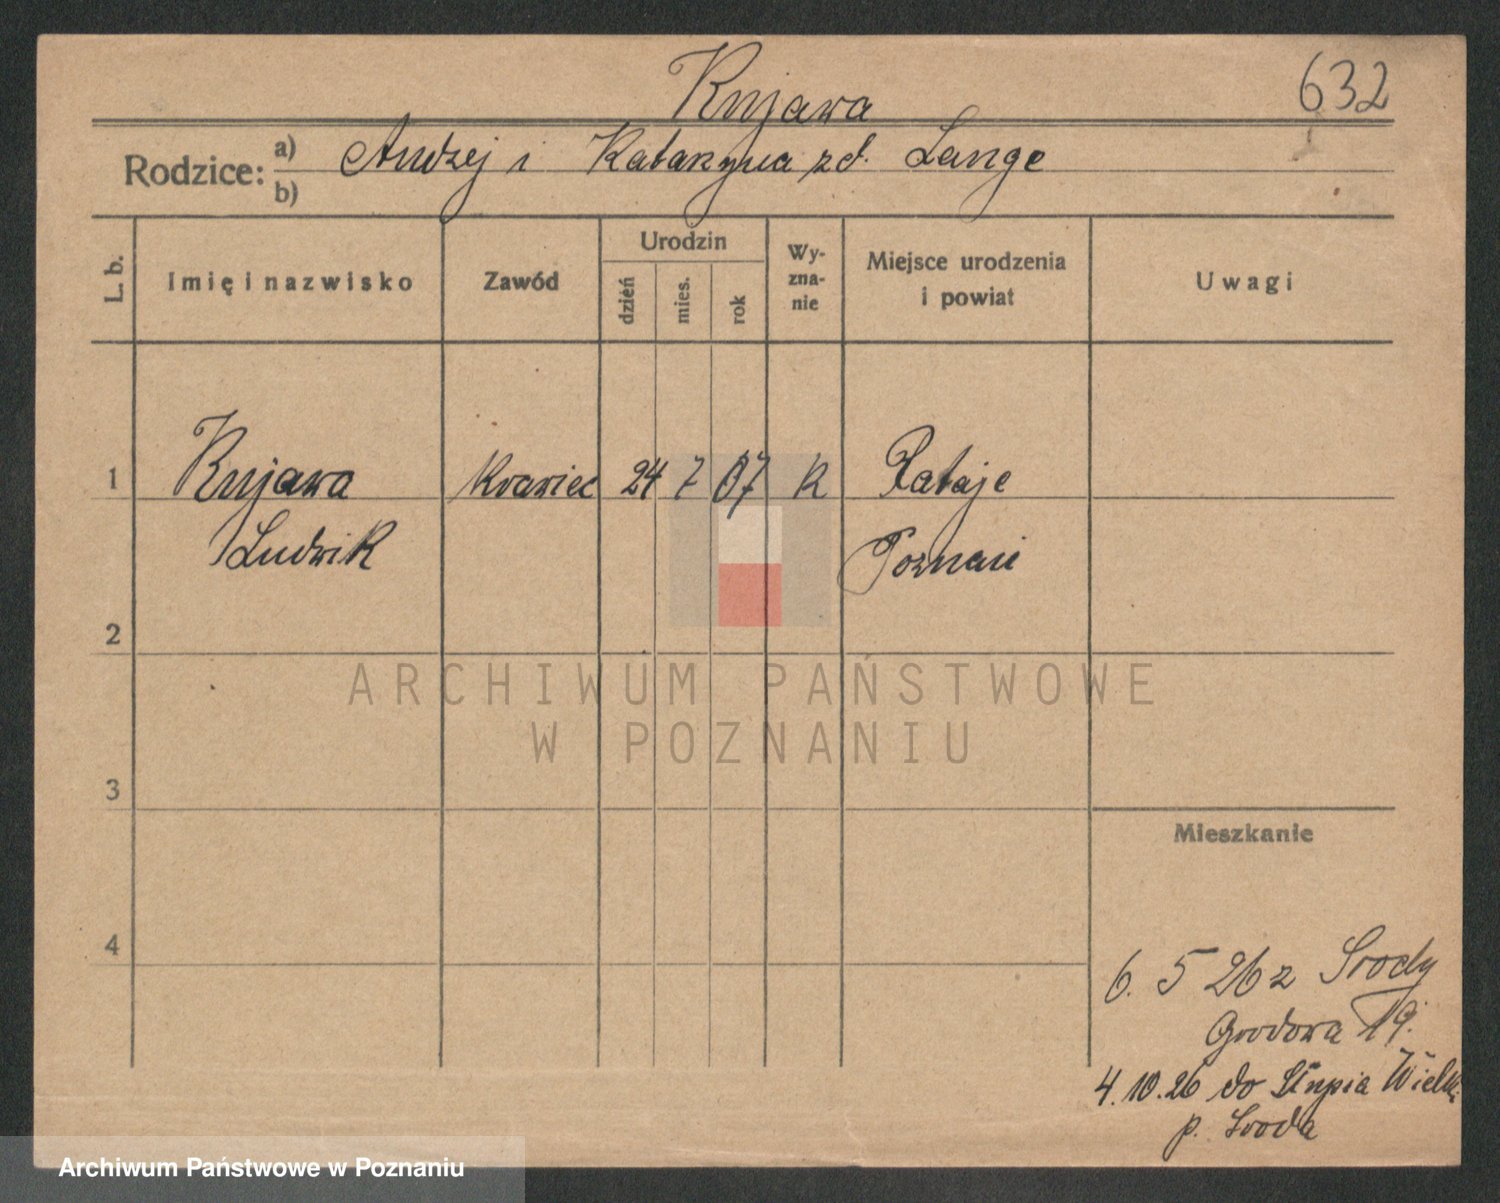 Kujawa
632
Rodzice: a) Andrzej i Katarzyna zd. Lange
b)
L. b.
Imię i nazwisko
Zawód
Urodzin
dzień
mies.
rok
Wy-
zna-
nie
Miejsce urodzenia
i powiat
Uwagi
1 Kujawa Krawiec 24 7 07 K Rataje
Ludwik Poznań
2
ARCHIWUM PAŃSTWOWE
W POZNANIU
3
Mieszkanie
4
6. 5 26 z Środy
Grodowa 19.
4.10.26 do Słupia Wielk.
p. Środa
Archiwum Państwowe w Poznaniu